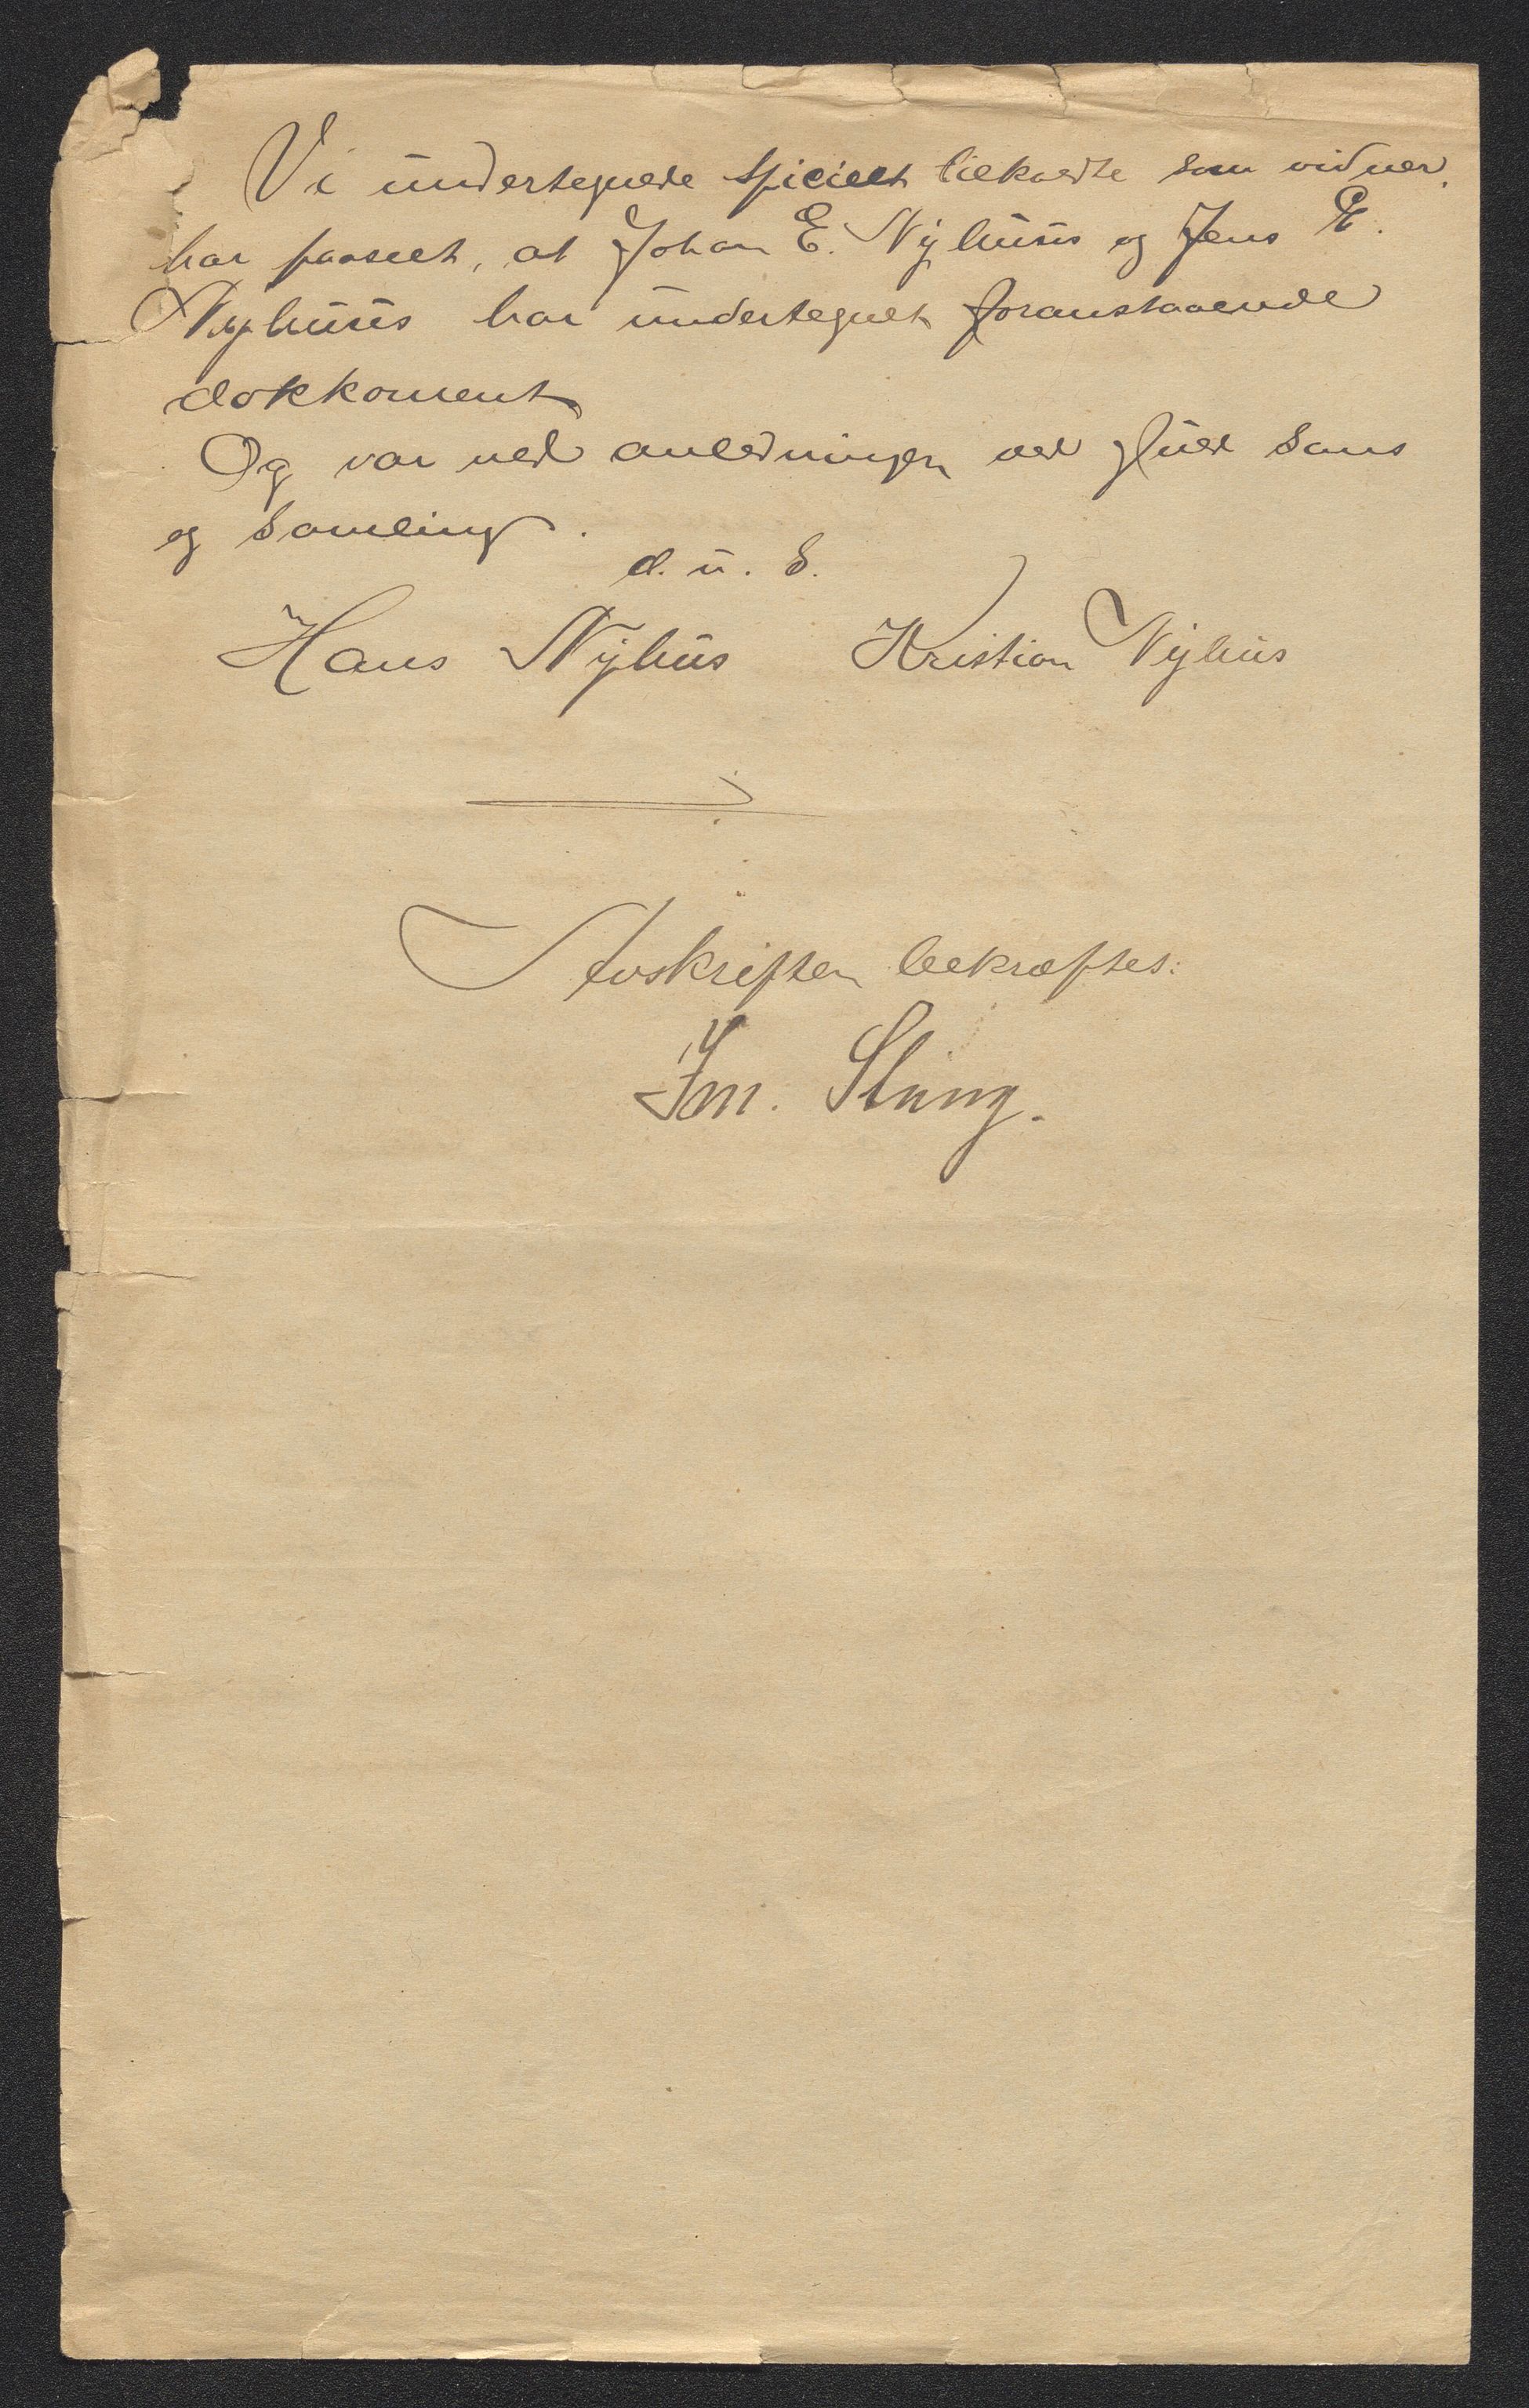 Vi undertegnede spicielt tilkaldte som vidner,
har paaseet, at Johan E. Nyhuus og Jens E.
Nyhuus har undertegnet foranstaaende
dokkoment
Og var ved anledningen ved fuld sans
og samling.
d. u. s.
Hans Nyhus Kristian Nyhus
Avskriften bekræftes: